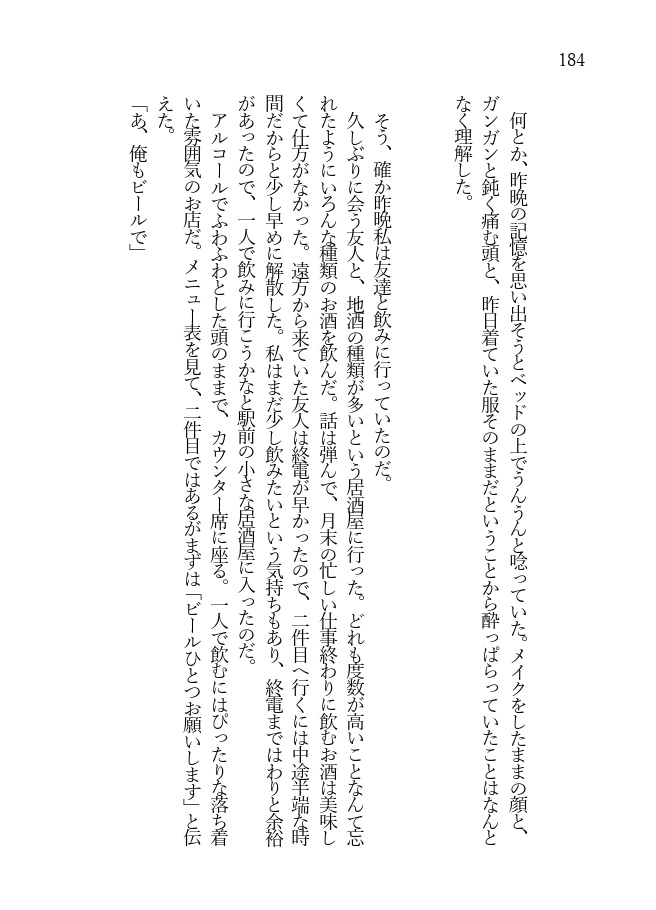 184
何とか、昨晩の記憶を思い出そうとベッドの上でうんうんと唸っていた。メイクをしたままの顔と、
ガンガンと鈍く痛む頭と、昨日着ていた服そのままだということから酔っぱらっていたことはなんと
なく理解した。
そう、確か昨晩私は友達と飲みに行っていたのだ。
久しぶりに会う友人と、地酒の種類が多いという居酒屋に行った。どれも度数が高いことなんて忘
れたようにいろんな種類のお酒を飲んだ。話は弾んで、月末の忙しい仕事終わりに飲むお酒は美味し
くて仕方がなかった。遠方から来ていた友人は終電が早かったので、二件目へ行くには中途半端な時
間だからと少し早めに解散した。私はまだ少し飲みたいという気持ちもあり、終電まではわりと余裕
があったので、一人で飲みに行こうかなと駅前の小さな居酒屋に入ったのだ。
アルコールでふわふわとした頭のままで、カウンター席に座る。一人で飲むにはぴったりな落ち着
いた雰囲気のお店だ。メニュー表を見て、二件目ではあるがまずは「ビールひとつお願いします」と伝
えた。
「あ、俺もビールで」